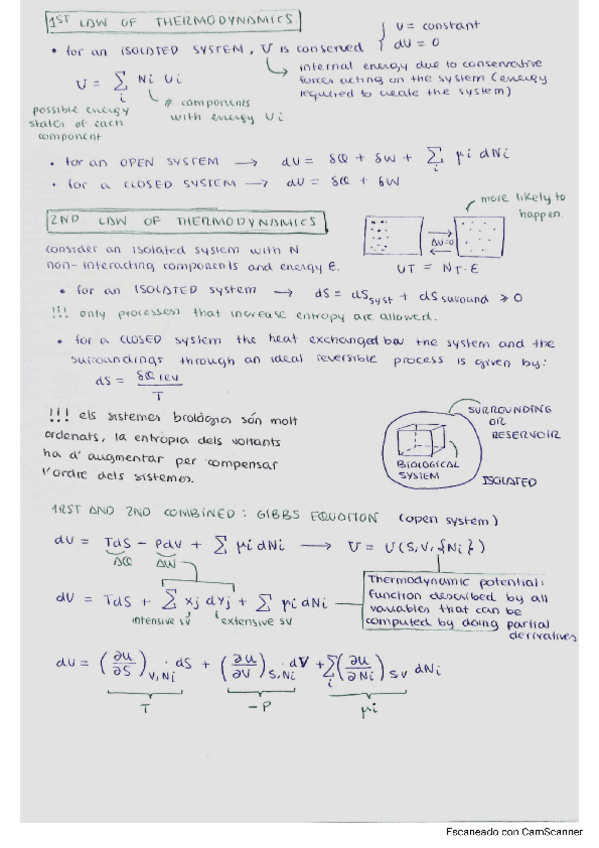 1ST LAW OF THERMODYNAMICS
• for an ISOLATED SYSTEM, U is conserved { U = constant
dU = 0
internal energy due to conservative
forces acting on the system (energy
required to create the system)
U = ∑i Ni Ui
# components
with energy Ui
possible energy
states of each
component
• for an OPEN SYSTEM → dU = δQ + δW + ∑i μi dNi
• for a CLOSED SYSTEM → dU = δQ + δW
2ND LAW OF THERMODYNAMICS
more likely to
happen.
ΔU=0
UT = NT·E
consider an isolated system with N
non-interacting components and energy E.
• for an ISOLATED system → dS = dSsyst + dSsuround ⩾ 0
!!! only processes that increase entropy are allowed.
• for a CLOSED system the heat exchanged bw the system and the
surroundings through an ideal reversible process is given by:
dS = δQ rev / T
!!! els sistemes biològics són molt
ordenats, la entropia dels voltants
ha d'augmentar per compensar
l'ordre dels sistemes.
SURROUNDING
OR
RESERVOIR
BIOLOGICAL
SYSTEM
ISOLATED
1RST AND 2ND COMBINED: GIBBS EQUATION (open system)
dU = TdS - PdV + ∑ μi dNi → U = U(S, V, {Ni})
ΔQ ΔW
Thermodynamic potential:
function described by all
variables that can be
computed by doing partial
derivatives
dU = TdS + ∑ Xj dYj + ∑ μi dNi
intensive SV extensive SV
dU = (∂U/∂S)V,Ni dS + (∂U/∂V)S,Ni dV + ∑i (∂U/∂Ni)SV dNi
T -P μi
Escaneado con CamScanner